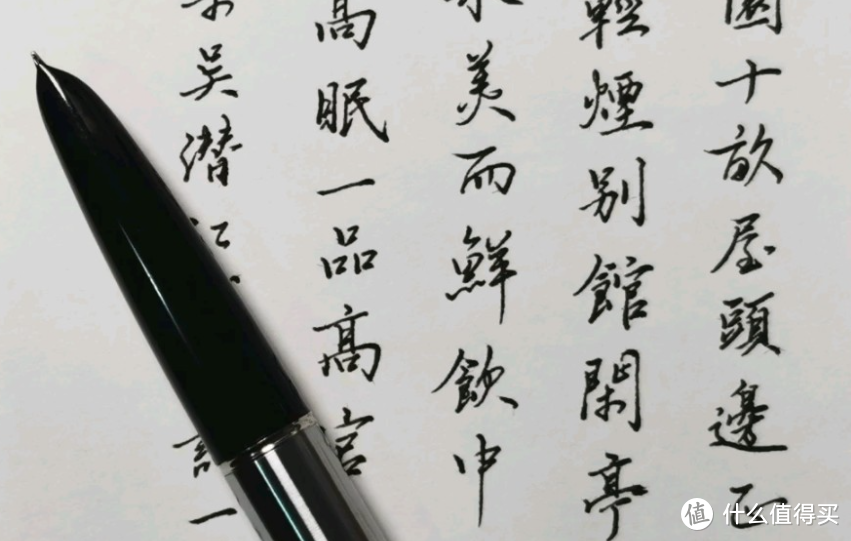 園十畝屋頭邊正
輕煙別館閑亭
美而鮮飲中
高眠一品高官
吴潛江
一
值 什么值得买